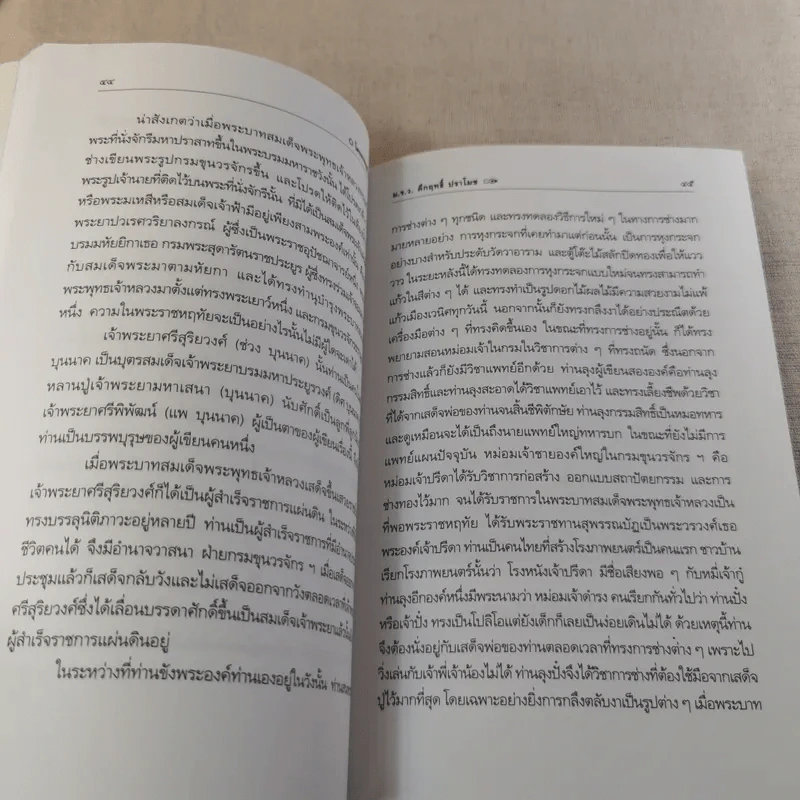 ๔๔
น่าสังเกตว่าเมื่อพระบาทสมเด็จพระพุทธเจ้าหลวง
พระที่นั่งจักรีมหาปราสาทขึ้นในพระบรมมหาราชวังนั้น ได้
ช่างเขียนพระรูปกรมขุนวรจักรขึ้น และโปรดให้ติดไว้
พระรูปเจ้านายที่ติดไว้บนพระที่นั่งจักรีนั้น ที่มิได้เป็นสมเด็จ
หรือพระมเหสีหรือสมเด็จเจ้าฟ้ามีอยู่เพียงสามพระองค์เท่านั้น
พระยาปวเรศวริยาลงกรณ์ ผู้ซึ่งเป็นพระราชอุปัชฌาจารย์
บรมมหัยยิกาเธอ กรมพระสุดารัตนราชประยูร ผู้ซึ่งทรงร่วม
กับสมเด็จพระมาตามหัยกา และได้ทรงทำนุบำรุงพระบาท
พระพุทธเจ้าหลวงมาตั้งแต่ทรงพระเยาว์หนึ่ง และกรมขุนวรจักร
หนึ่ง ความในพระราชหฤทัยจะเป็นอย่างไรนั้นไม่มีผู้ใด
เจ้าพระยาศรีสุริยวงศ์ (ช่วง บุนนาค) นั้นท่านเป็น
บุนนาค เป็นบุตรสมเด็จเจ้าพระยาบรมมหาประยูรวงศ์ (ดิศ
หลานปู่เจ้าพระยามหาเสนา (บุนนาค) นับศักดิ์เป็นลูกที่ลูกน้อง
เจ้าพระยาศรีพิพัฒน์ (แพ บุนนาค) ผู้เป็นตาของผู้เขียนเรื่องนี้
ท่านเป็นบรรพบุรุษของผู้เขียนคนหนึ่ง
เมื่อพระบาทสมเด็จพระพุทธเจ้าหลวงเสด็จขึ้นเสวยราช
เจ้าพระยาศรีสุริยวงศ์ก็ได้เป็นผู้สำเร็จราชการแผ่นดิน ในระหว่าง
ทรงบรรลุนิติภาวะอยู่หลายปี ท่านเป็นผู้สำเร็จราชการที่มีอำนาจ
ชีวิตคนได้ จึงมีอำนาจวาสนา ฝ่ายกรมขุนวรจักร ฯ เมื่อเสด็จ
ประชุมแล้วก็เสด็จกลับวังและไม่เสด็จออกจากวังตลอดเวลาที่
ศรีสุริยวงศ์ซึ่งได้เลื่อนบรรดาศักดิ์ขึ้นเป็นสมเด็จเจ้าพระยาแล้วนั้น
ผู้สำเร็จราชการแผ่นดินอยู่
ในระหว่างที่ท่านขังพระองค์ท่านเองอยู่ในวังนั้น
ม.ร.ว. คึกฤทธิ์ ปราโมช
๔๕
การช่างต่าง ๆ ทุกชนิด และทรงทดลองวิธีการใหม่ ๆ ในทางการช่างมาก
มายหลายอย่าง การหุงกระจกที่เคยทำมาแต่ก่อนนั้น เป็นการหุงกระจก
อย่างบางสำหรับประดับวัดวาอาราม และตู้โต๊ะไม้สลักปิดทองเพื่อให้แวว
วาว ในระยะหลังนี้ได้ทรงทดลองการหุงกระจกแบบใหม่จนทรงสามารถทำ
แก้วในสีต่าง ๆ ได้ และทรงทำเป็นรูปดอกไม้ผลไม้มีความสวยงามไม่แพ้
แก้วเมืองเวนิศทุกวันนี้ นอกจากนั้นก็ยังทรงกลึงงาได้อย่างประณีตด้วย
เครื่องมือต่าง ๆ ที่ทรงคิดขึ้นเอง ในขณะที่ทรงการช่างอยู่นั้น ก็ได้ทรง
พยายามสอนหม่อมเจ้าในกรมในวิชาการต่าง ๆ ที่ทรงถนัด ซึ่งนอกจาก
การช่างแล้วก็ยังมีวิชาแพทย์อีกด้วย ท่านลุงผู้เขียนสององค์คือท่านลุง
กรรมสิทธิ์และท่านลุงสะอาดได้วิชาแพทย์เอาไว้ และทรงเลี้ยงชีพด้วยวิชา
ที่ได้จากเสด็จพ่อของท่านจนสิ้นชีพิตักษัย ท่านลุงกรรมสิทธิ์เป็นหมอทหาร
และดูเหมือนจะได้เป็นถึงนายแพทย์ใหญ่ทหารบก ในขณะที่ยังไม่มีการ
แพทย์แผนปัจจุบัน หม่อมเจ้าชายองค์ใหญ่ในกรมขุนวรจักร ฯ คือ
หม่อมเจ้าปรีดาได้รับวิชาการก่อสร้าง ออกแบบสถาปัตยกรรม และการ
ช่างทองไว้มาก จนได้รับราชการในพระบาทสมเด็จพระพุทธเจ้าหลวงเป็น
ที่พอพระราชหฤทัย ได้รับพระราชทานสุพรรณบัฏเป็นพระวรวงศ์เธอ
พระองค์เจ้าปรีดา ท่านเป็นคนไทยที่สร้างโรงภาพยนตร์เป็นคนแรก ชาวบ้าน
เรียกโรงภาพยนตร์นั้นว่า โรงหนังเจ้าปรีดา มีชื่อเสียงพอ ๆ กับหมี่เจ้ากู๋
ท่านลุงอีกองค์หนึ่งมีพระนามว่า หม่อมเจ้าดำรง คนเรียกกันทั่วไปว่า ท่านปั๋ง
หรือเจ้าปั๋ง ทรงเป็นโปลิโอแต่ยังเด็กก็เลยเป็นง่อยเดินไม่ได้ ด้วยเหตุนี้ท่าน
จึงต้องนั่งอยู่กับเสด็จพ่อของท่านตลอดเวลาที่ทรงการช่างต่าง ๆ เพราะไป
วิ่งเล่นกับเจ้าพี่เจ้าน้องไม่ได้ ท่านลุงปั๋งจึงได้วิชาการช่างที่ต้องใช้มือจากเสด็จ
ปู่ไว้มากที่สุด โดยเฉพาะอย่างยิ่งการกลึงตลับงาเป็นรูปต่าง ๆ เมื่อพระบาท